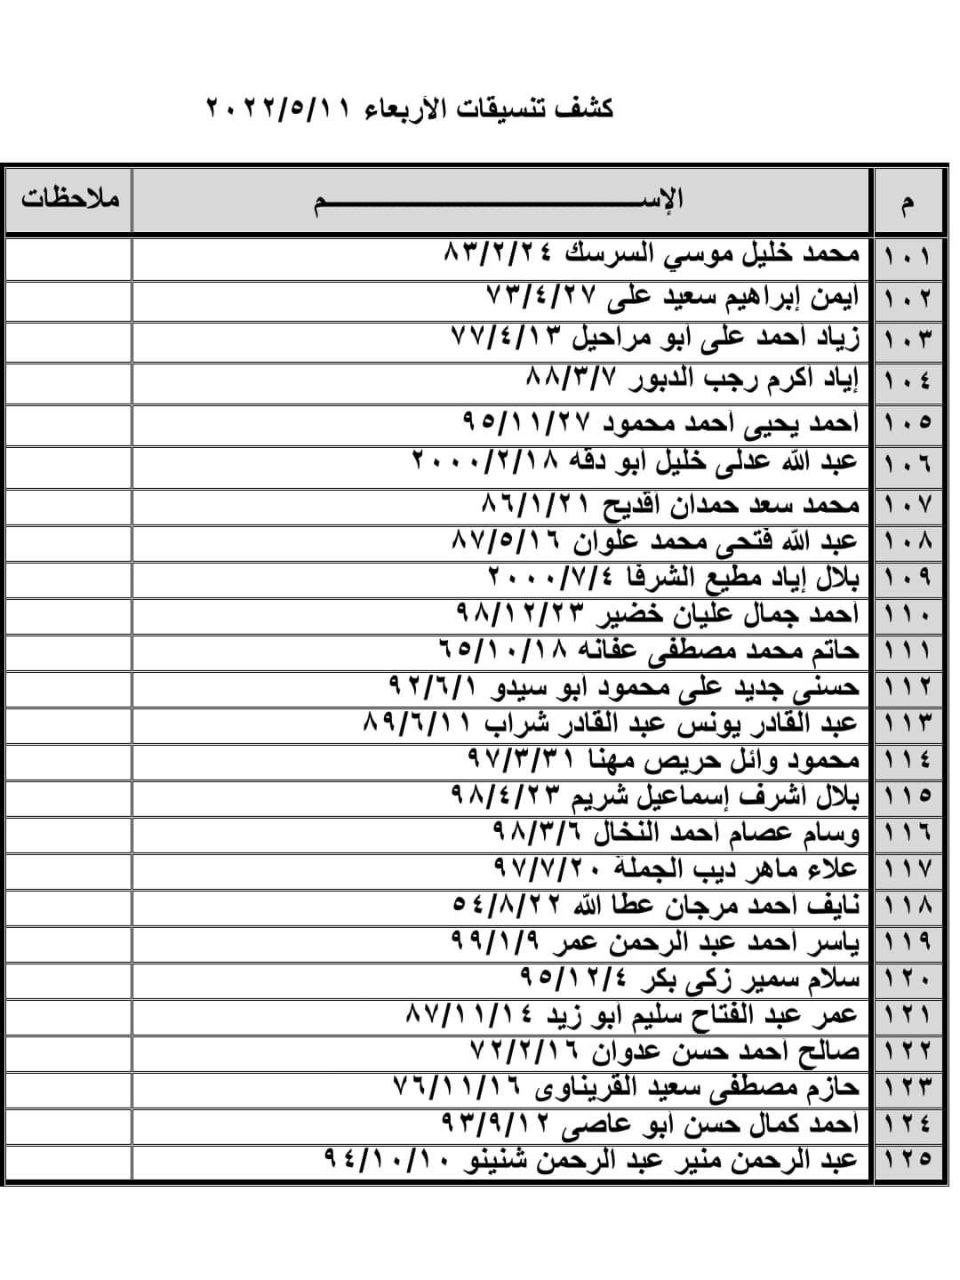 كشف تنسيقات الأربعاء ٢٠٢٢/٥/١١
م الإســـــــــــــــــــم ملاحظات
١٠١ محمد خليل موسي السرسك ٨٣/٢/٢٤
١٠٢ ايمن إبراهيم سعيد على ٧٣/٤/٢٧
١٠٣ زياد احمد على ابو مراحيل ٧٧/٤/١٣
١٠٤ إياد اكرم رجب الدبور ٨٨/٣/٧
١٠٥ احمد يحيى احمد محمود ٩٥/١١/٢٧
١٠٦ عبد الله عدلى خليل ابو دقه ٢٠٠٠/٢/١٨
١٠٧ محمد سعد حمدان اقديح ٨٦/١/٢١
١٠٨ عبد الله فتحى محمد علوان ٨٧/٥/١٦
١٠٩ بلال إياد مطيع الشرفا ٢٠٠٠/٧/٤
١١٠ احمد جمال عليان خضير ٩٨/١٢/٢٣
١١١ حاتم محمد مصطفى عفانه ٦٥/١٠/١٨
١١٢ حسنى جديد على محمود ابو سيدو ٩٢/٦/١
١١٣ عبد القادر يونس عبد القادر شراب ٨٩/٦/١١
١١٤ محمود وائل حريص مهنا ٩٧/٣/٣١
١١٥ بلال اشرف إسماعيل شريم ٩٨/٤/٢٣
١١٦ وسام عصام احمد النخال ٩٨/٣/٦
١١٧ علاء ماهر ديب الجملة ٩٧/٧/٢٠
١١٨ نايف احمد مرجان عطا الله ٥٤/٨/٢٢
١١٩ ياسر احمد عبد الرحمن عمر ٩٩/١/٩
١٢٠ سلام سمير زكى بكر ٩٥/١٢/٤
١٢١ عمر عبد الفتاح سليم ابو زيد ٨٧/١١/١٤
١٢٢ صالح احمد حسن عدوان ٧٢/٢/١٦
١٢٣ حازم مصطفى سعيد القريناوى ٧٦/١١/١٦
١٢٤ احمد كمال حسن ابو عاصى ٩٣/٩/١٢
١٢٥ عبد الرحمن منير عبد الرحمن شنينو ٩٤/١٠/١٠